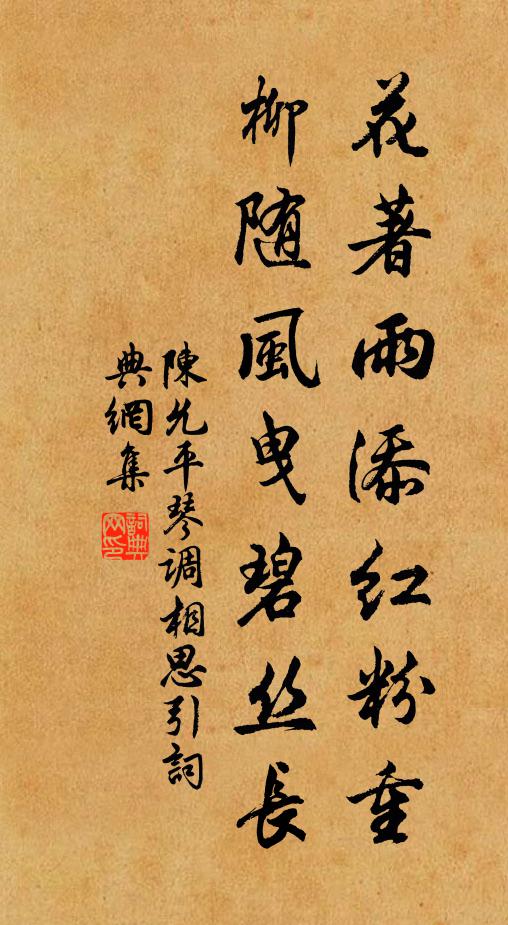 花著雨添红粉重
柳随風曳碧丝長
陳允平琴调相思引詞
典網集
詞典
网印